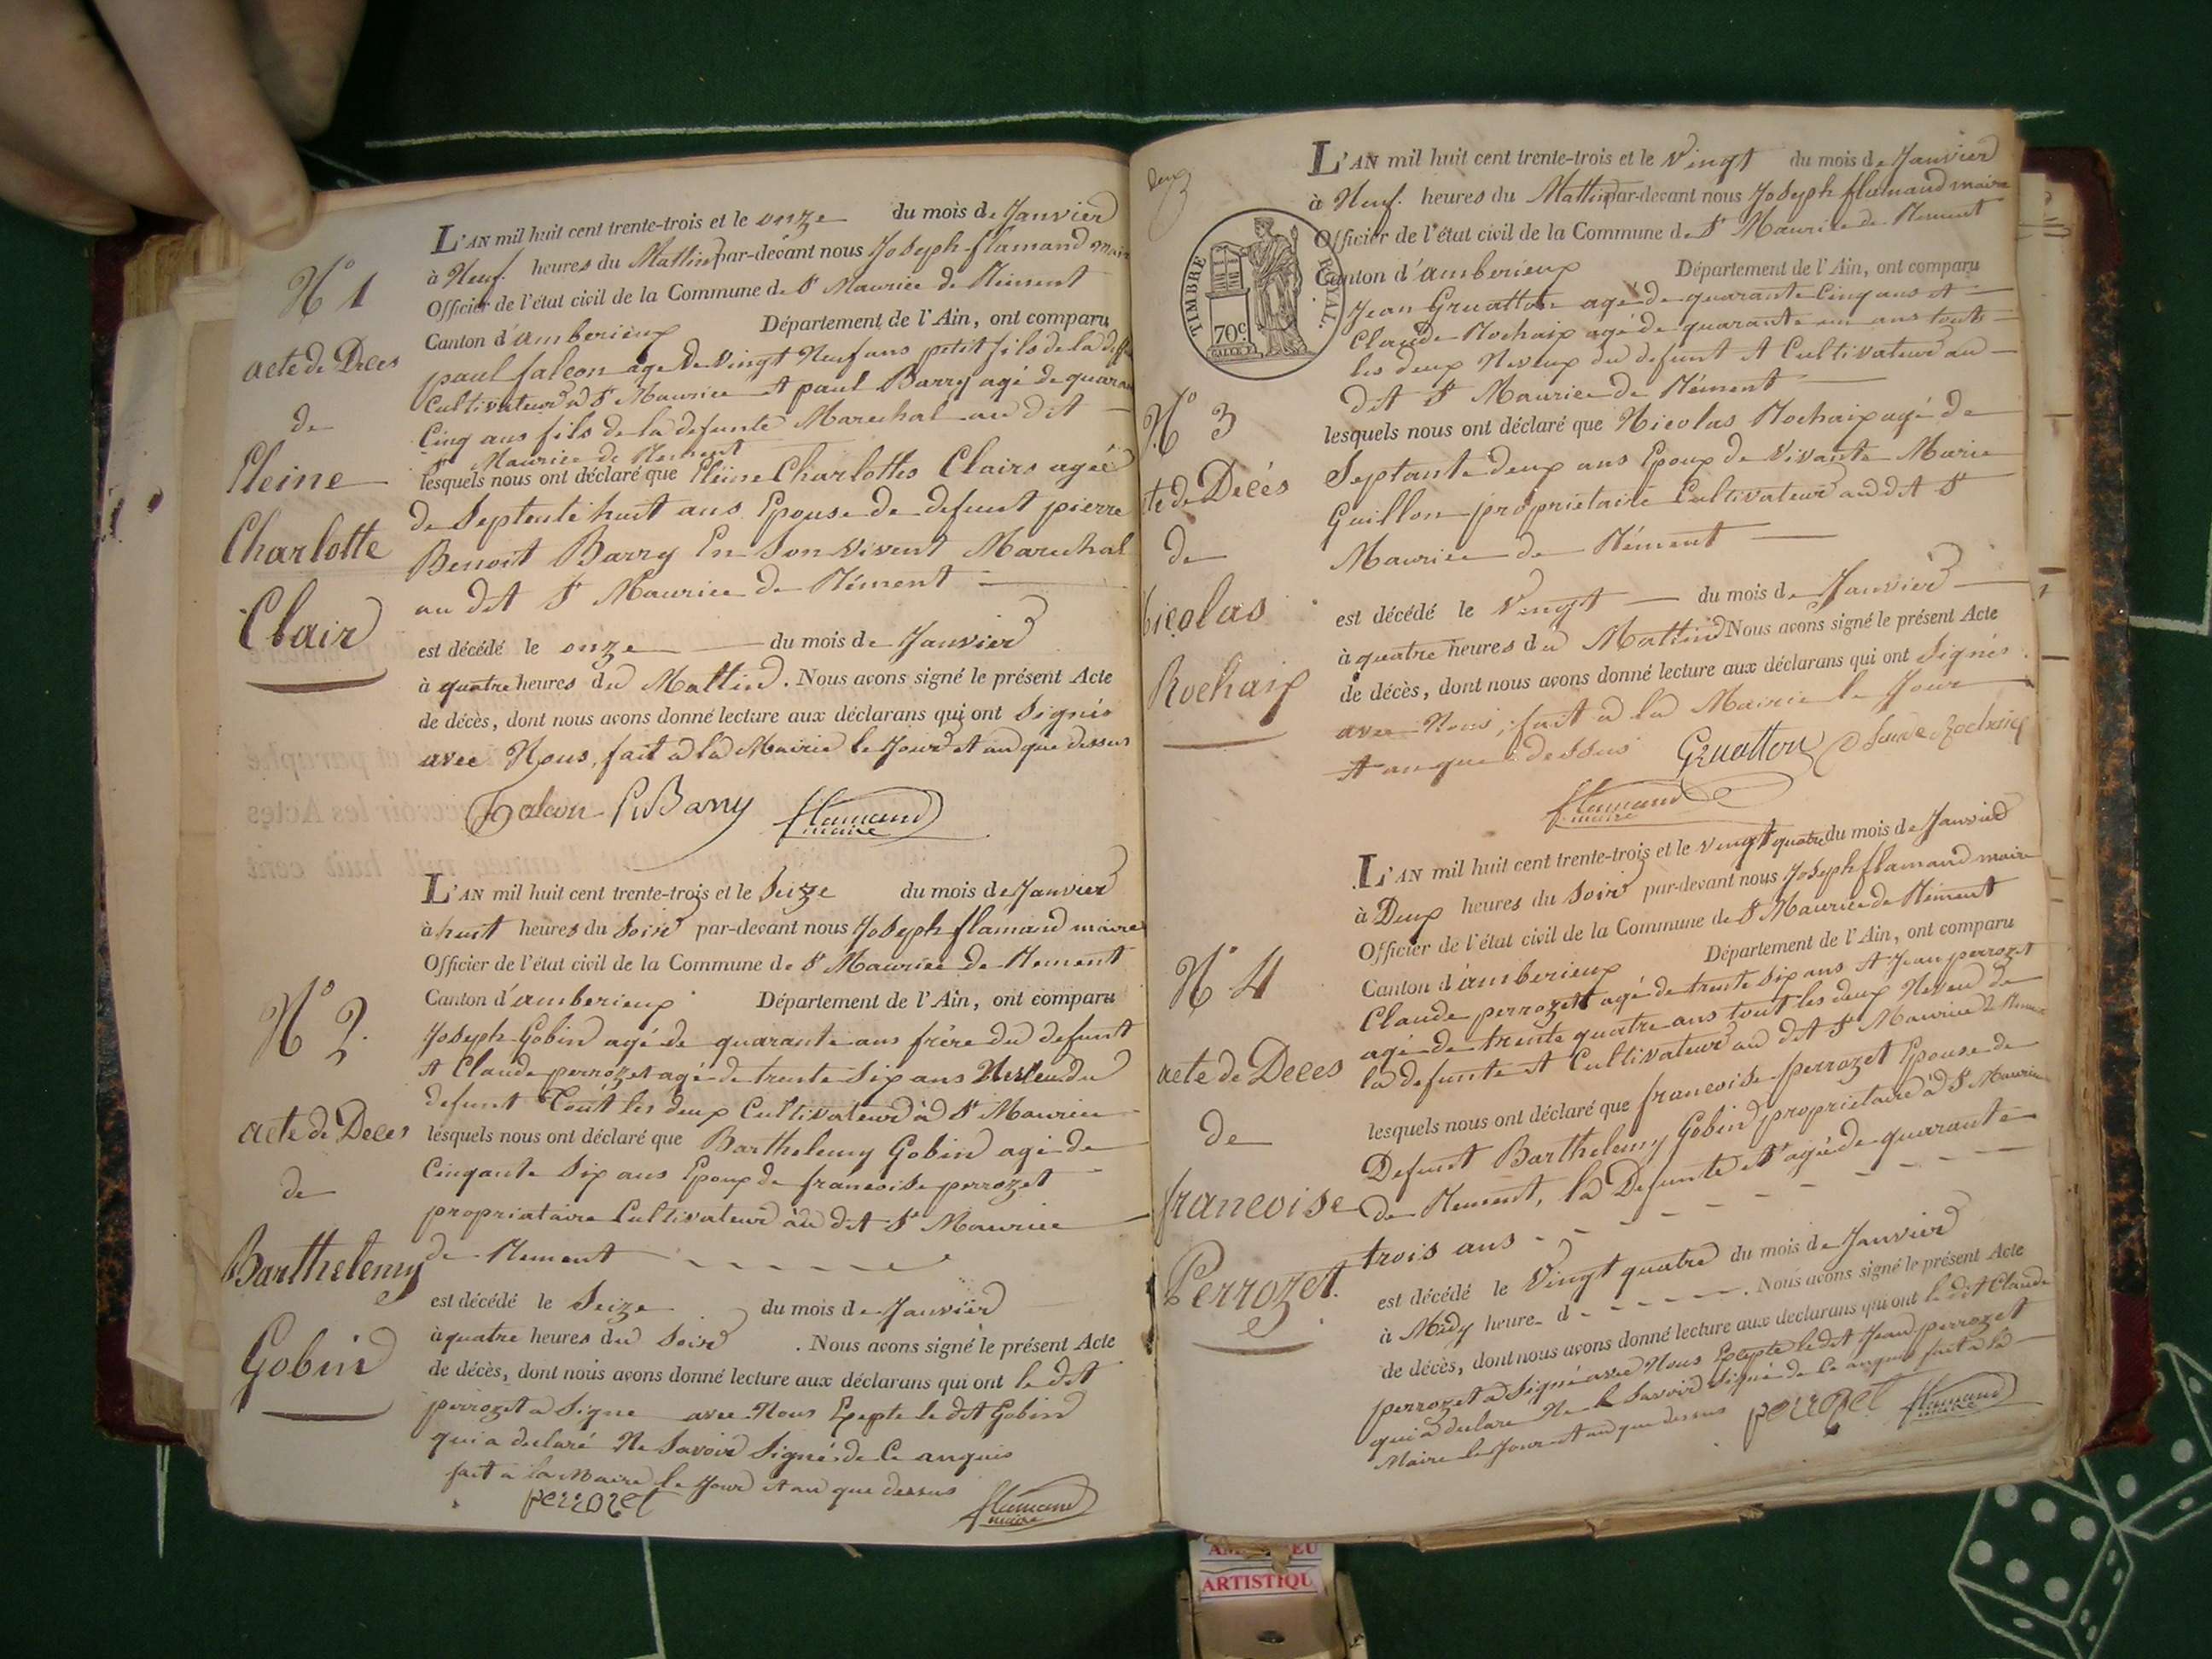 N° 1
acte de Deces
de
Pleine
Charlotte
Clair
L'AN mil huit cent trente-trois et le onze du mois de Janvier
à Neuf heures du Mattin par-devant nous Joseph flamand maire
Officier de l'état civil de la Commune de St Maurice de Rement
Canton d'amberieux Département de l'Ain, ont comparu
paul falcon agé de vingt Neuf ans petit fils de la
Cultivateur à St Maurice et paul Barry agé de quarante
Cinq ans fils de la defunte Marechal au dit
St Maurice de Rement
lesquels nous ont déclaré que Pleine Charlottes Clairs agée
de Septente huit ans Epouse de defunt pierre
Benoit Barry En Son vivent Marechal
au dit St Maurice de Rément
est décédé le onze du mois de Janvier
à quatre heures du Mattin. Nous avons signé le présent Acte
de décès, dont nous avons donné lecture aux déclarans qui ont Signés
avec Nous, fait à la Mairie le Jour et an que dessus
falcon Barry flamand
maire
N° 2.
acte de Deces
de
Barthelemy
Gobin
L'AN mil huit cent trente-trois et le Seize du mois de Janvier
à huit heures du Soir par-devant nous Joseph flamand maire
Officier de l'état civil de la Commune de St Maurice de Rement
Canton d'amberieux Département de l'Ain, ont comparu
Joseph Gobin agé de quarante ans frère du defunt
et Claude perrozet agé de trente Six ans Neveu du
defunt Tout les deux Cultivateur à St Maurice
lesquels nous ont déclaré que Barthelemy Gobin agé de
Cinqante Six ans Epoux de francoise perrozet
propriataire Cultivateur au dit St Maurice
de Rement
est décédé le Seize du mois de Janvier
à quatre heures du Soir. Nous avons signé le présent Acte
de décès, dont nous avons donné lecture aux déclarans qui ont le dit
perrozet a Signe avec Nous Exepte le dit Gobin
qui a declaré Ne Savoir Signé de Ce anquis
fait a la Maire le Jour et an que dessus
perrozet flamand
maire
deux
TIMBRE ROYAL.
70c.
N° 3
te de Décés
de
Nicolas
Rochaix
L'AN mil huit cent trente-trois et le Vingt du mois de Janvier
à Neuf heures du Mattin par-devant nous Joseph flamand maire
Officier de l'état civil de la Commune de St Maurice de Rement
Canton d'amberieux Département de l'Ain, ont comparu
Jean Gruatton agé de quarante Cinq ans et
Claude Rochaix agé de quarante un ans touts
les deux Neveux du defunt et Cultivateur au
dit St Maurice de Rément
lesquels nous ont déclaré que Nicolas Rochaix agé de
Septante deux ans Epoux de Vivante Marie
Guillon propriétaire Cultivateur au dit St
Maurice de Rément
est décédé le Vingt du mois de Janvier
à quatre heures du Mattin Nous avons signé le présent Acte
de décès, dont nous avons donné lecture aux déclarans qui ont Signés
avec Nous, fait à la Mairie le Jour
et an que dessus Gruatton Rochaix
flamand
maire
N° 4
acte de Deces
de
francoise
Perrozet.
L'AN mil huit cent trente-trois et le vingt quatre du mois de Janvier
à Deux heures du Soir par-devant nous Joseph flamand maire
Officier de l'état civil de la Commune de St Maurice de Rément
Canton d'amberieux Département de l'Ain, ont comparu
Claude perrozet agé de trente Six ans et Jean perrozet
agé de trente quatre ans tout les deux Neveu de
la defunte et Cultivateur au dit St Maurice de
lesquels nous ont déclaré que francoise perrozet Epouse de
Defunt Barthelemy Gobin propriétaire à St Maurice
de Rement, la Defunte et agé de quarante
trois ans
est décédé le Vingt quatre du mois de Janvier
à Midy heure d . Nous avons signé le présent Acte
de décès, dont nous avons donné lecture aux declarans qui ont le dit Claude
perrozet a Signé avec Nous Exepte le dit Jean perrozet
qui a declare Ne Savoir Signé de Ce anquis fait a la
Maire le Jour et an que dessus perrozet flamand
maire
ARTISTIQU